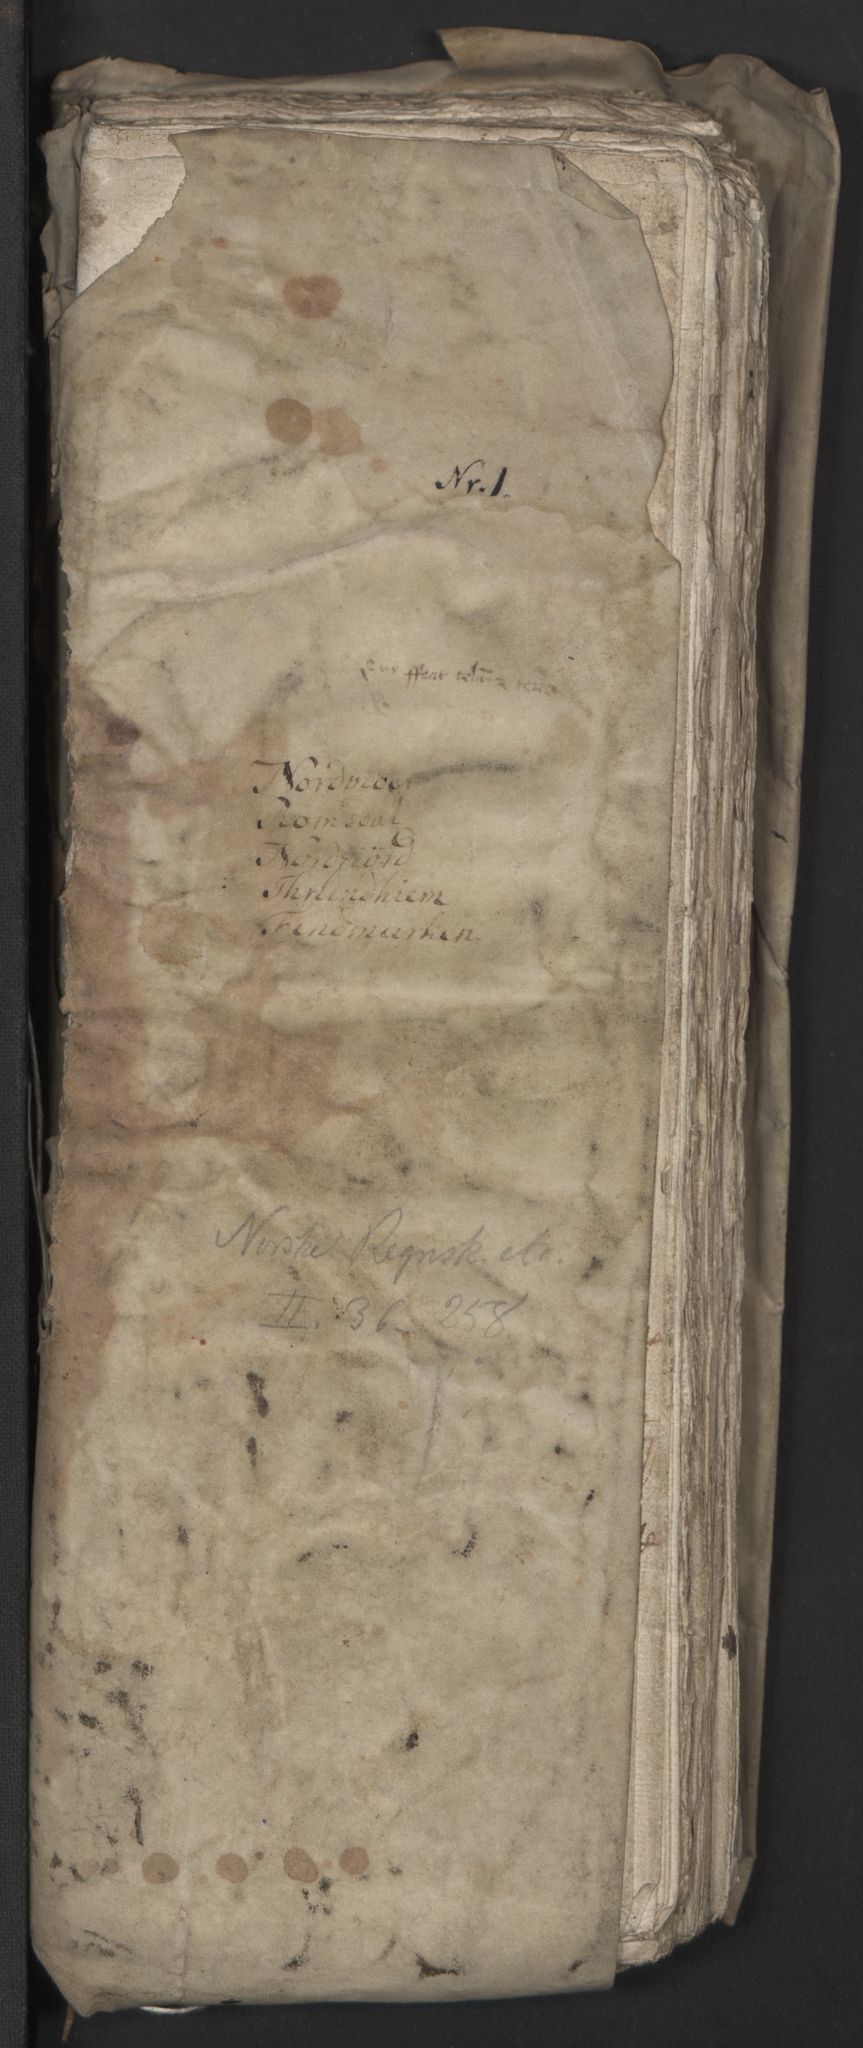 Nr. 1.
Nordmör
Romsdal
Nordfiörd
Thrundhiem
Findmarken.
Norske Regnsk. etc.
II. 36 258